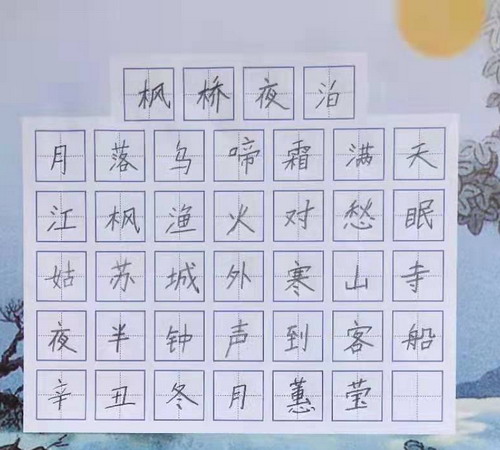 枫桥夜泊
月落乌啼霜满天
江枫渔火对愁眠
姑苏城外寒山寺
夜半钟声到客船
辛丑冬月蕙莹